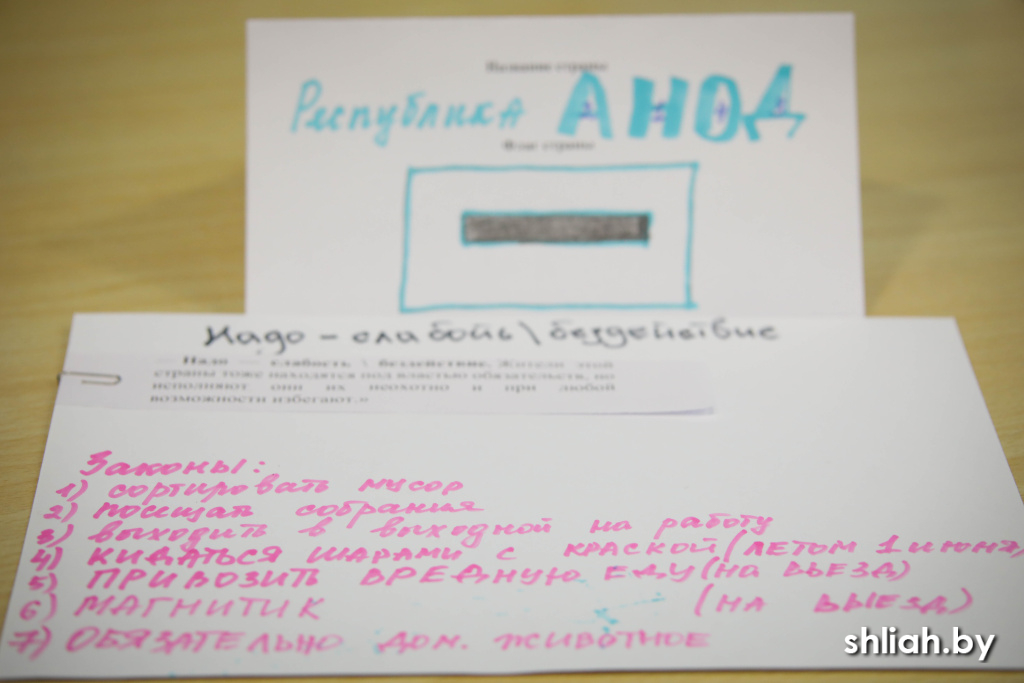 Название страны
Республика АНОД
Флаг страны
Надо - слабость\бездействие
Надо — слабость \ бездействие. Жители этой
страны тоже находятся под властью обязательств, но
исполняют они их неохотно и при любой
возможности избегают.»
Законы:
1) сортировать мусор
2) посещать собрания
3) выходить в выходной на работу
4) КИДАТЬСЯ ШАРАМИ С КРАСКОЙ (ЛЕТОМ 1 июня,
5) ПРИВОЗИТЬ ВРЕДНУЮ ЕДУ (НА ВЬЕЗД)
6) МАГНИТИК (НА ВЫЕЗД)
7) ОБЯЗАТЕЛЬНО ДОМ. ЖИВОТНОЕ
shliah.by